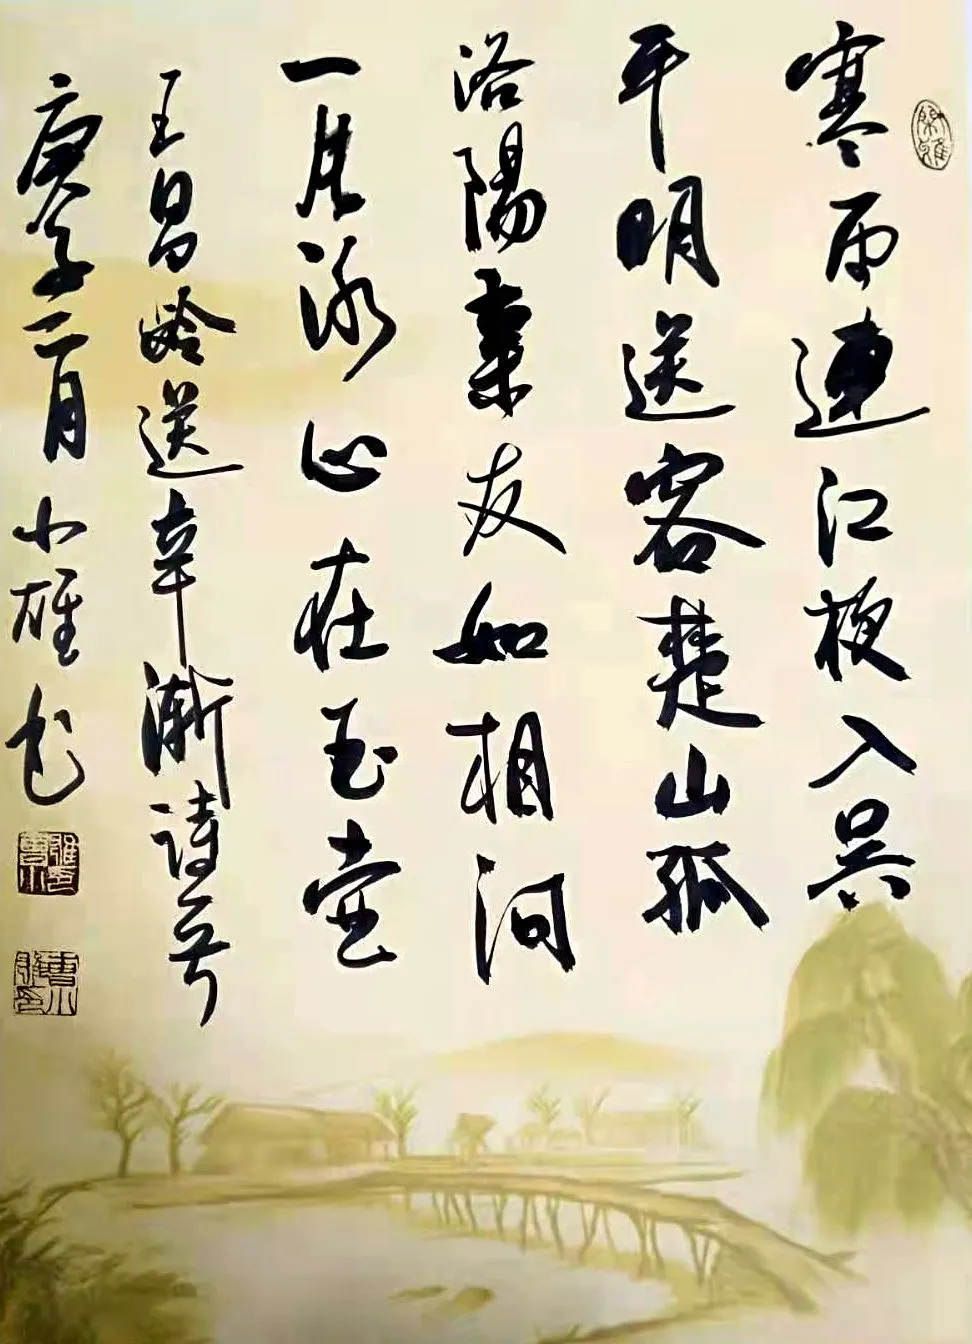 寒雨連江夜入吴
平明送客楚山孤
洛陽亲友如相问
一片冰心在玉壶
王昌龄送辛漸詩一首
庚子二月小雄书